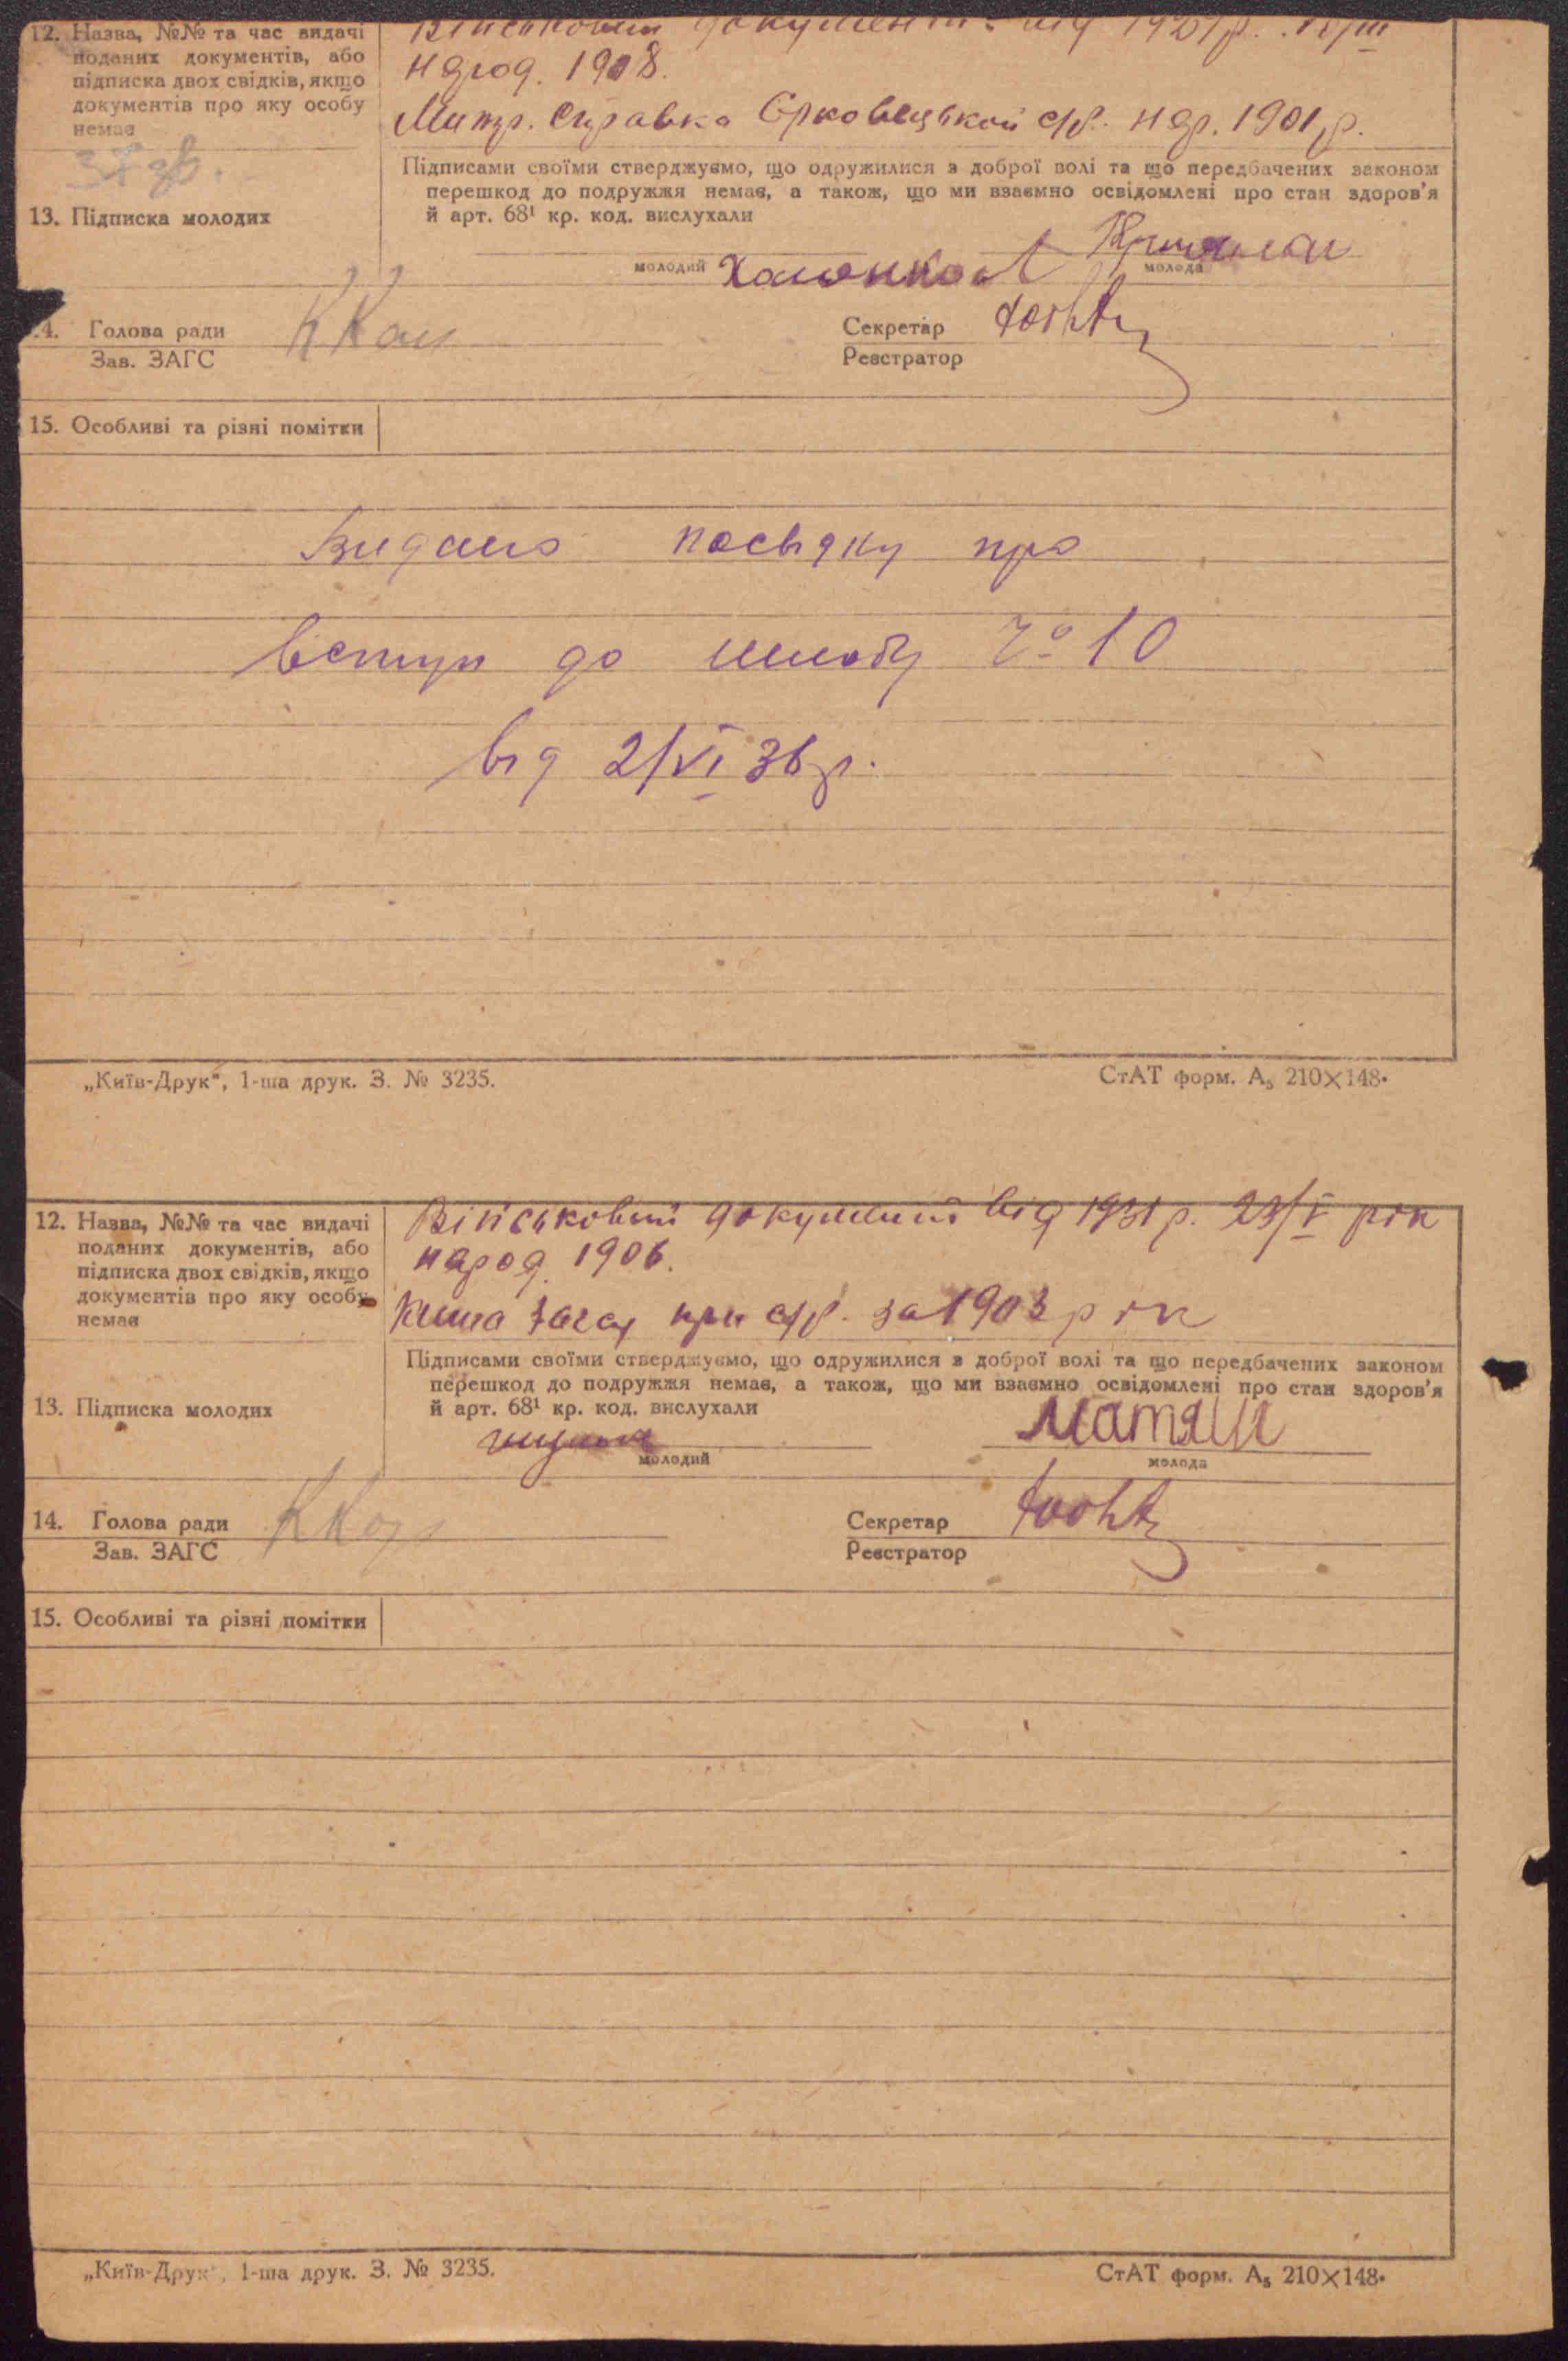 12. Назва, №№ та час видачі
поданих документів, або
підписка двох свідків, якщо
документів про яку особу
немає
Військовий документ від
народ. 1908.
Метр. справка Єрковецької с/р. нар. 1901 р.
Підписами своїми стверджуємо, що одружилися з доброї волі та що передбачених законом
перешкод до подружжя немає, а також, що ми взаємно освідомлені про стан здоров'я
й арт. 68¹ кр. код. вислухали
13. Підписка молодих
молодий
молода
14. Голова ради
Зав. ЗАГС
Секретар
Реєстратор
15. Особливі та різні помітки
Видано посвідку про
вступ до шлюбу № 10
від 2/VI 36 р.
„Київ-Друк“, 1-ша друк. З. № 3235.
СтАТ форм. А₅ 210×148.
12. Назва, №№ та час видачі
поданих документів, або
підписка двох свідків, якщо
документів про яку особу
немає
Військовий документ від 1931 р. 23/V рік
народ. 1906.
Книга загсу при с/р. за 1903 рік
Підписами своїми стверджуємо, що одружилися з доброї волі та що передбачених законом
перешкод до подружжя немає, а також, що ми взаємно освідомлені про стан здоров'я
й арт. 68¹ кр. код. вислухали
13. Підписка молодих
молодий
Матяш
молода
14. Голова ради
Зав. ЗАГС
Секретар
Реєстратор
15. Особливі та різні помітки
„Київ-Друк“, 1-ша друк. З. № 3235.
СтАТ форм. А₅ 210×148.